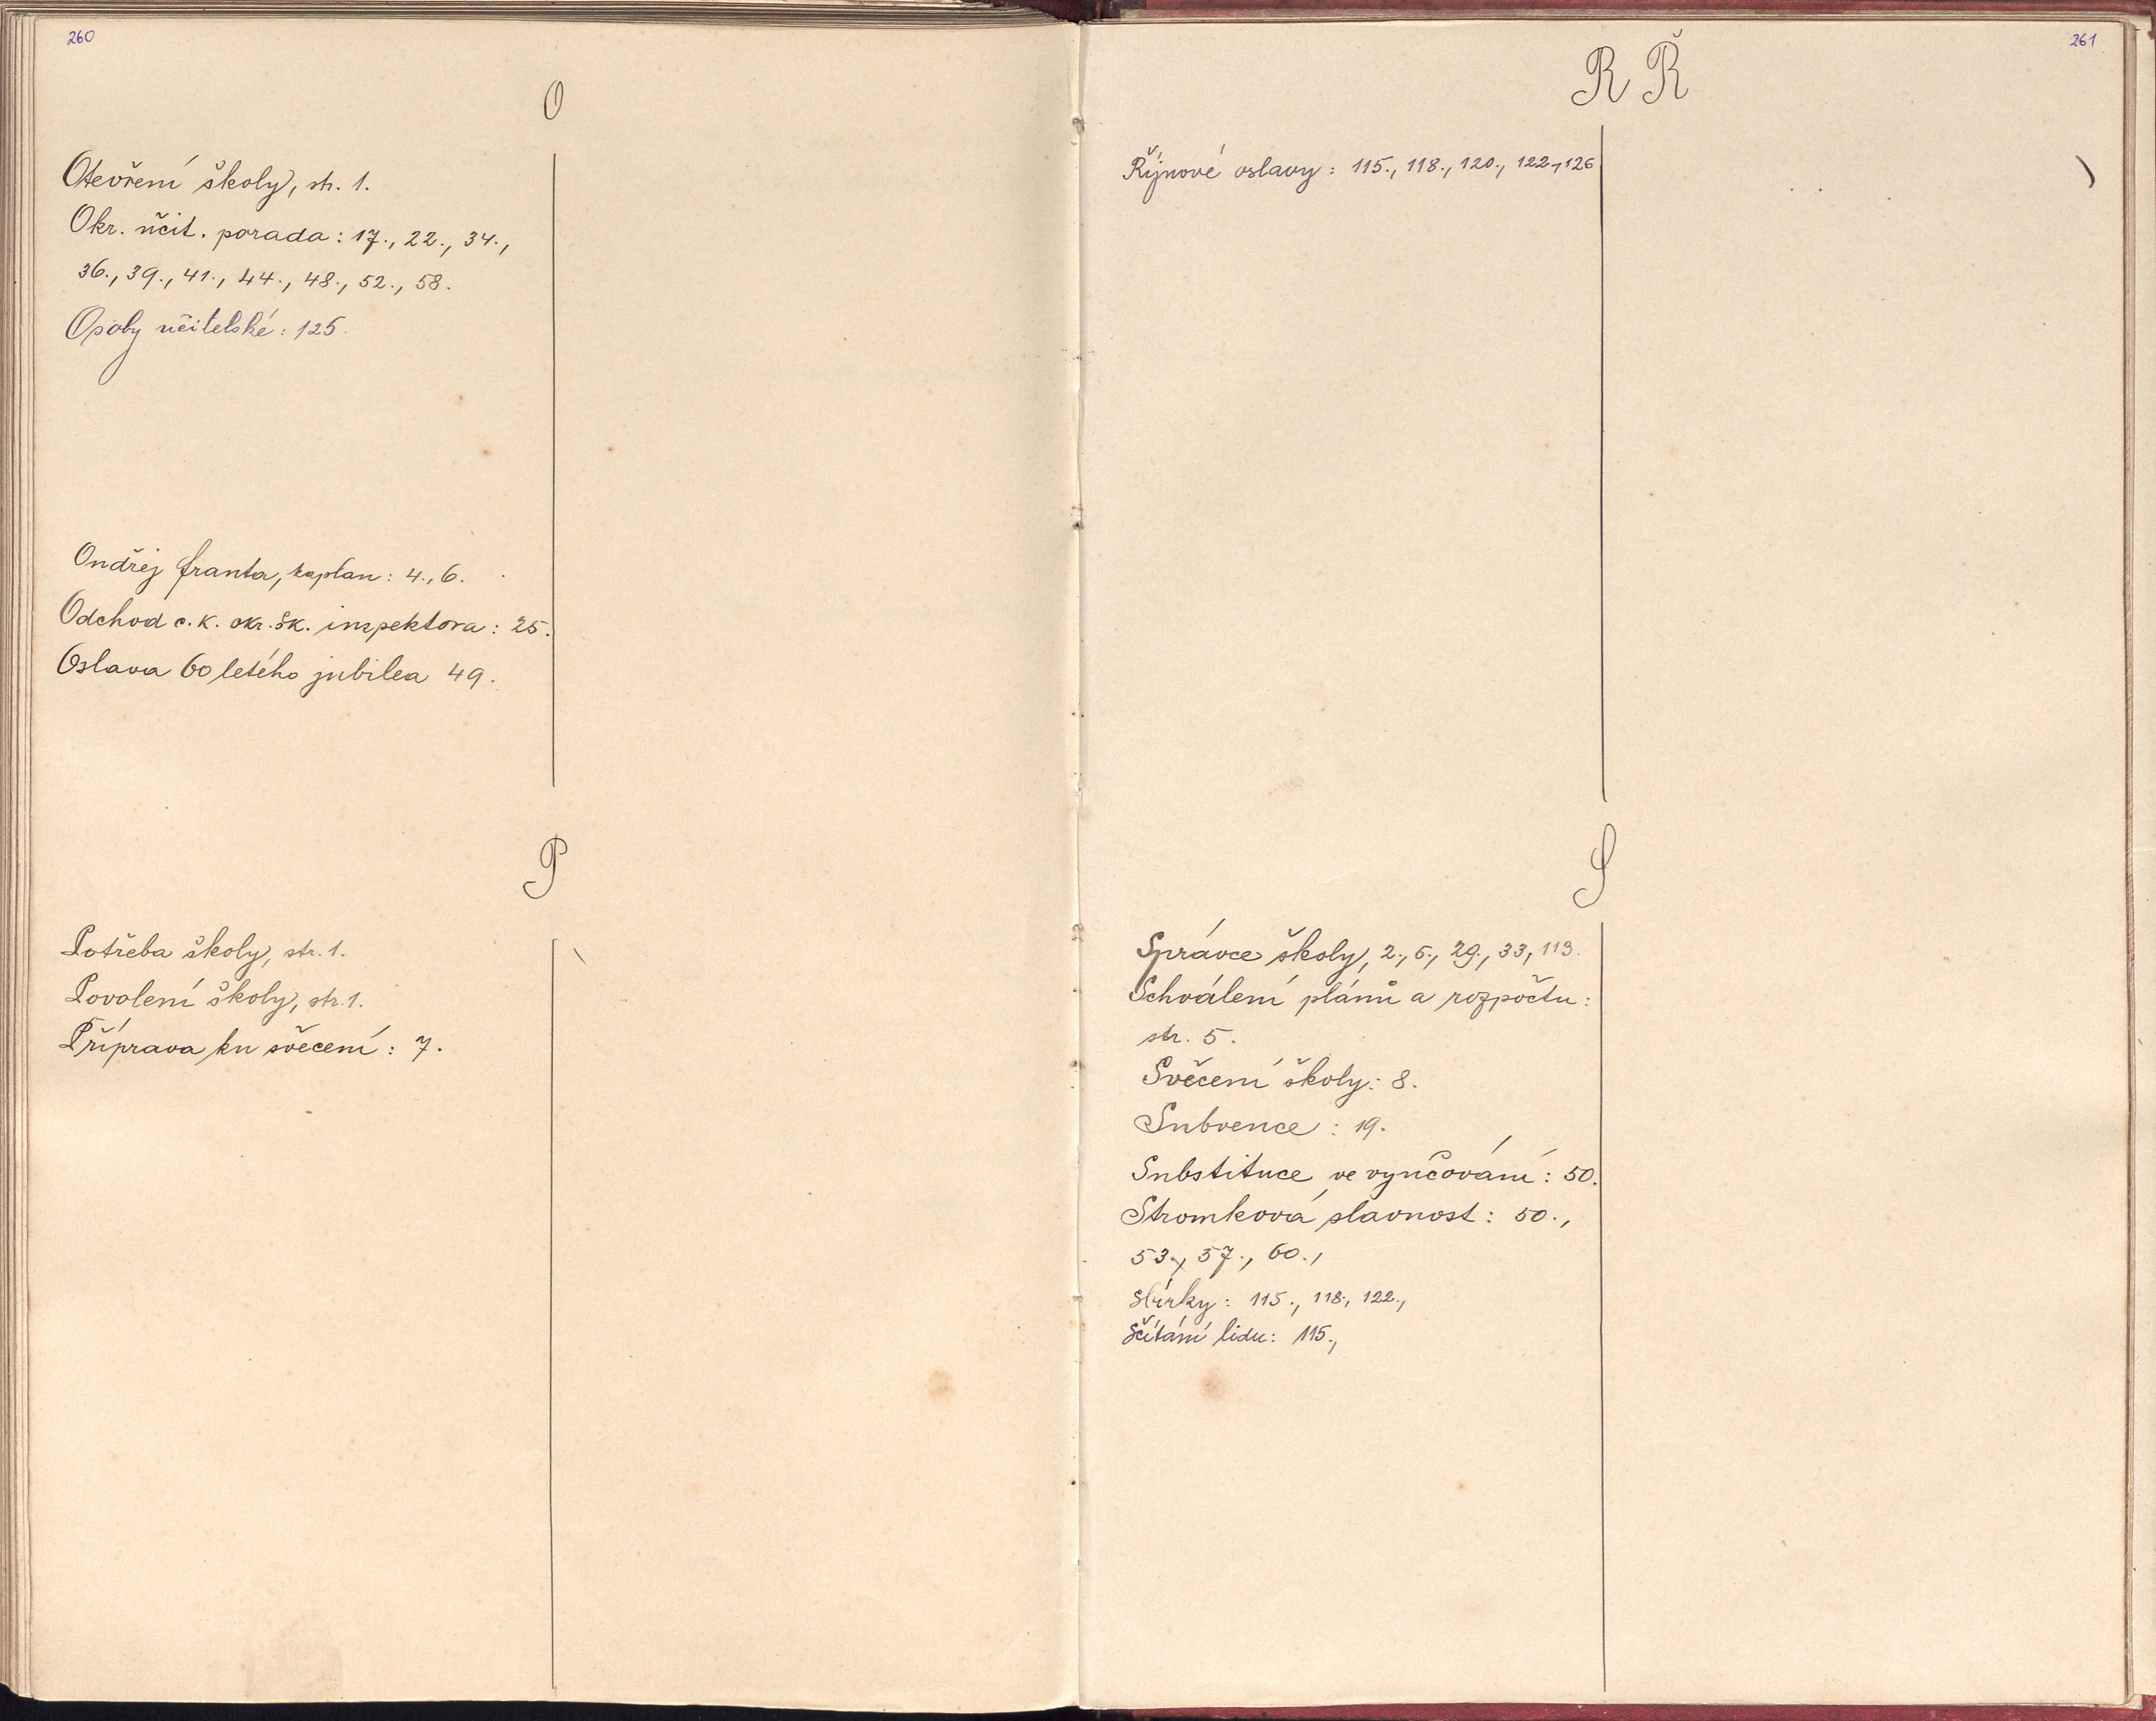 260
O
Otevření školy, str. 1.
Okr. učit. porada: 17., 22., 34.,
36., 39., 41., 44., 48., 52., 58.
Osoby učitelské: 125.
Ondřej Franta, kaplan: 4., 6.
Odchod c. k. okr. šk. inspektora: 25.
Oslava 60 letého jubilea 49.
P
Potřeba školy, str. 1.
Povolení školy, str. 1.
Příprava ku svěcení: 7.
261
R Ř
Říjnové oslavy: 115., 118., 120., 122., 126
S
Správce školy, 2., 6., 29., 33, 113.
Schválení plánů a rozpočtu:
str. 5.
Svěcení školy: 8.
Subvence: 19.
Substituce ve vyučování: 50.
Stromková slavnost: 50.,
53., 57., 60.,
Sbírky: 115., 118., 122.,
Sčítání lidu: 115.,